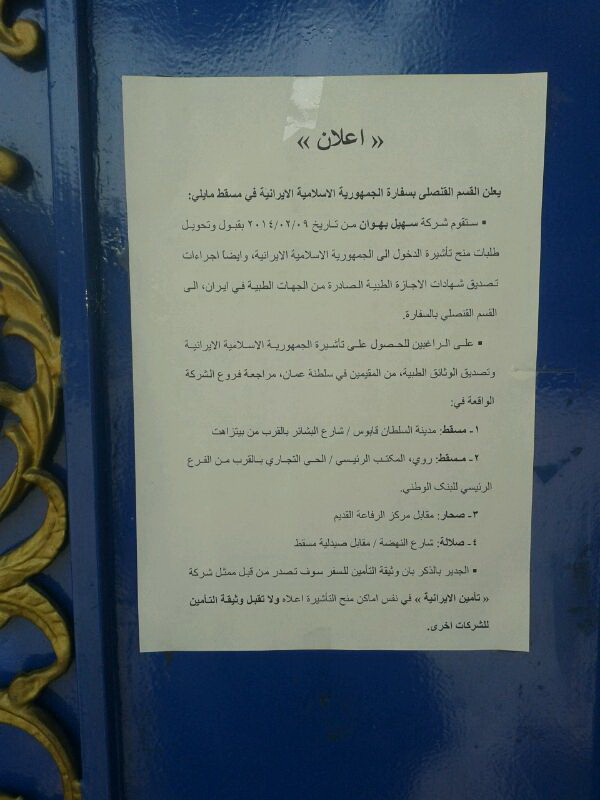 « اعلان »
يعلن القسم القنصلى بسفارة الجمهورية الاسلامية الايرانية في مسقط مايلي:
▪ ستقوم شركة سهيل بهوان من تاريخ ٢٠١٤/٠٢/٠٩ بقبول وتحويل
طلبات منح تأشيرة الدخول الى الجمهورية الاسلامية الايرانية، وايضاً اجراءات
تصديق شهادات الاجازة الطبية الصادرة من الجهات الطبية في ايران، الى
القسم القنصلي بالسفارة.
▪ على الراغبين للحصول على تأشيرة الجمهورية الاسلامية الايرانية
وتصديق الوثائق الطبية، من المقيمين في سلطنة عمان، مراجعة فروع الشركة
الواقعة في:
١- مسقط: مدينة السلطان قابوس / شارع البشائر بالقرب من بيتزاهت
٢- مسقط: روي، المكتب الرئيسي / الحى التجاري بالقرب من الفرع
الرئيسي للبنك الوطني.
٣- صحار: مقابل مركز الرفاعة القديم
٤- صلالة: شارع النهضة / مقابل صيدلية مسقط
▪ الجدير بالذكر بان وثيقة التأمين للسفر سوف تصدر من قبل ممثل شركة
« تأمين الايرانية » في نفس اماكن منح التأشيرة اعلاه ولا تقبل وثيقة التأمين
للشركات اخرى.